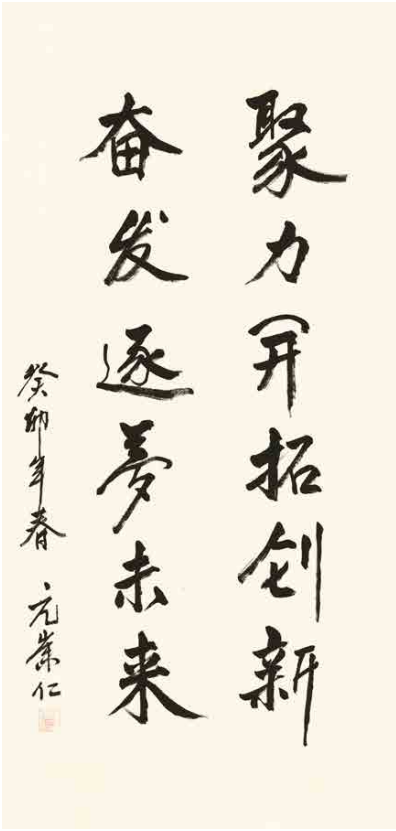 聚力开拓创新
奋发逐夢未来
癸卯年春 元崇仁